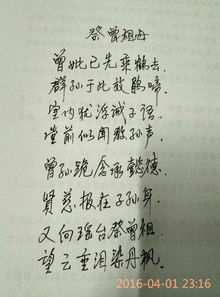 祭曾祖母
曾妣已先乘鹤去
群孙于此放鹃啼.
室内犹浮诫子语
堂前似闻教孙声
曾孙跪念承懿德
贤慈报在子孙身.
又向瑶台祭曾祖.
望云垂泪染丹枫.
2016-04-01 23:16